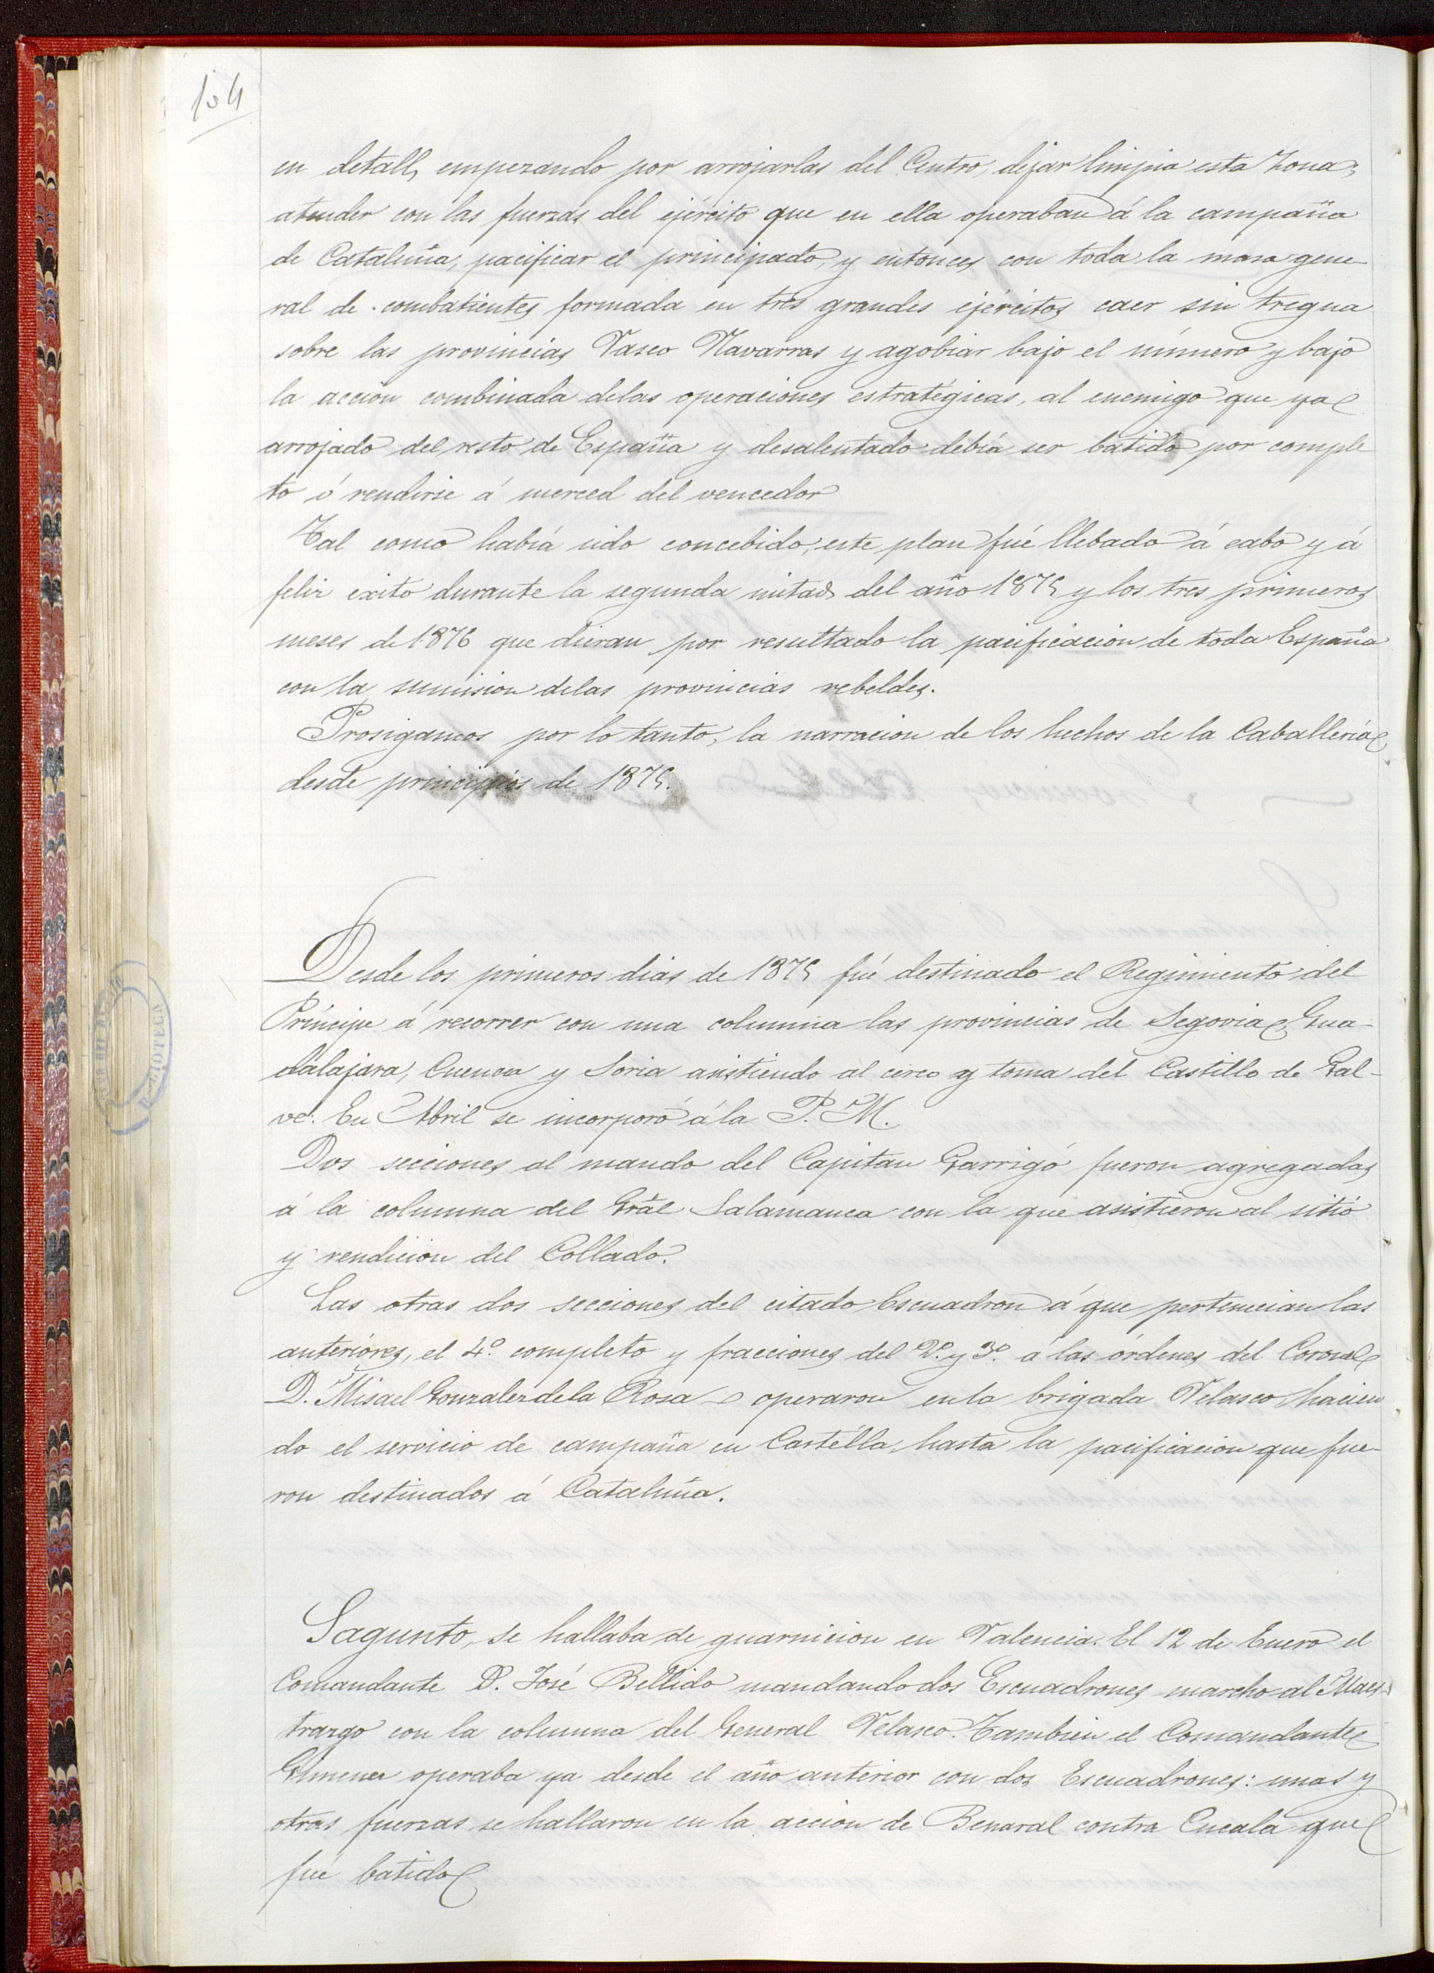 134
en detall, empezando por arrojarlas del Centro, dejar limpia esta zona,
atender con las fuerzas del ejército que en ella operaban á la campaña
de Cataluña, pacificar el principado, y entonces con toda la masa gene-
ral de combatientes formada en tres grandes ejércitos caer sin tregua
sobre las provincias Vasco Navarras y agobiar bajo el número y bajo
la acción combinada delas operaciones estratégicas, al enemigo que ya
arrojado del resto de España y desalentado debía ser batido por comple
to ó rendirse á merced del vencedor
Tal como había sido concebido, este plan fué llebado á cabo y á
feliz exito durante la segunda mitad del año 1875 y los tres primeros
meses de 1876 que dieran por resultado la pacificacion de toda España
con la sumision delas provincias rebeldes.
Prosigamos por lo tanto, la narracion de los hechos de la Caballería
desde principios de 1875.
Desde los primeros dias de 1875 fué destinado el Regimiento del
Príncipe á recorrer con una columna las provincias de Segovia, Gua-
dalajara, Cuenca y Soria asistiendo al cerco y toma del Castillo de Gal-
ve. En Abril se incorporó á la P. M.
Dos secciones al mando del Capitan Garrigó fueron agregadas
á la columna del Gral Salamanca con la que asistieron al sitio
y rendicion del Collado.
Las otras dos secciones del citado Escuadron á que pertenecian las
anteriores, el 4º completo y fracciones del 2º y 3º á las órdenes del Coronel
D. Misael Gonzalez dela Rosa operaron en la brigada Velasco hacien
do el servicio de campaña en Castilla, hasta la pacificacion que fue-
ron destinados á Cataluña.
Sagunto, se hallaba de guarnicion en Valencia. El 12 de Enero el
Comandante D. José Bellido mandando dos Escuadrones marcho al Maes-
trazgo con la columna del General Velasco. Tambien el Comandante
Gimenez operaba ya desde el año anterior con dos Escuadrones: unas y
otras fuerzas se hallaron en la accion de Benasal contra Cucala que
fué batido